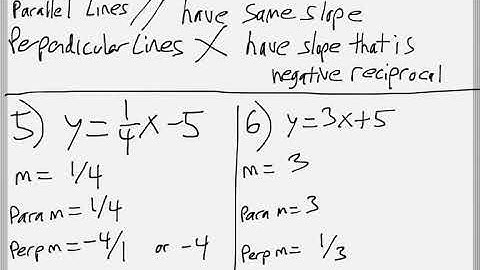 Parallel Lines // have same slope
Perpendicular Lines X have slope that is
negative reciprocal
5) y = 1/4 x - 5
m = 1/4
Para m = 1/4
Perp m = -4/1 or -4
6) y = 3x + 5
m = 3
Para m = 3
Perp m = 1/3